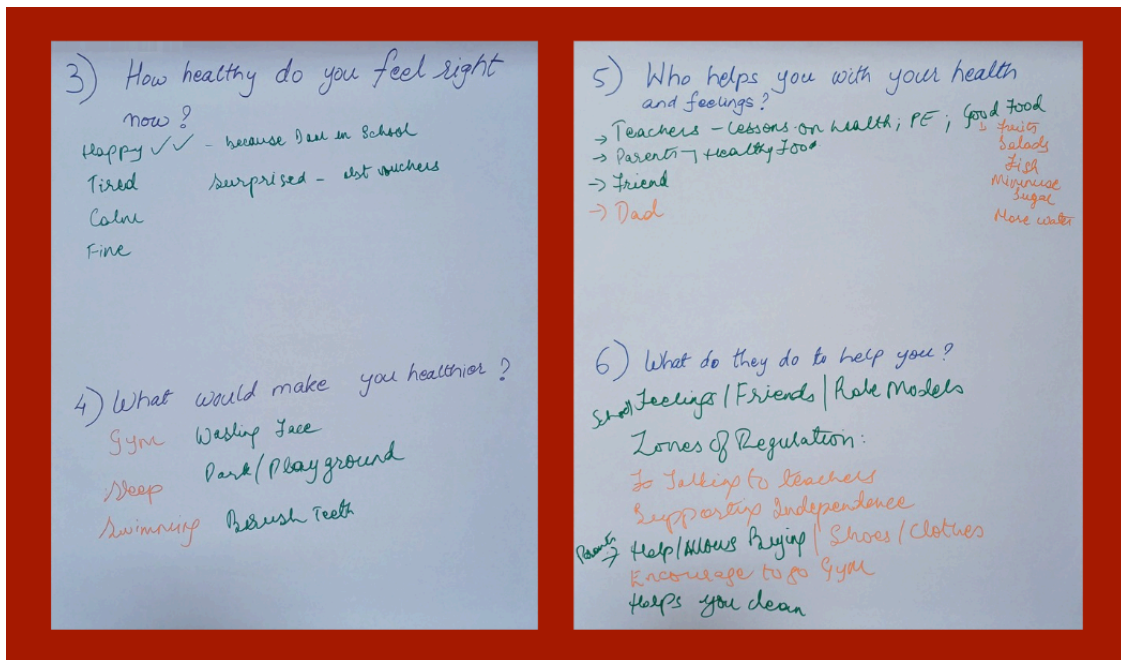 3) How healthy do you feel right
now?
Happy ✓✓ - because Dad in School
Tired Surprised - vouchers
Calm
Fine
4) What would make you healthier?
Gym Washing Face
Park/Playground
Sleep
Swimming Brush Teeth
5) Who helps you with your health
and feelings?
→ Teachers - Lessons on health; PE; Good Food
→ Parents → Healthy Food
→ Friend
→ Dad
↓ fruits
Salads
Fish
Minimise
Sugar
More water
6) What do they do to help you?
School Feelings/Friends/Role Models
Zones of Regulation:
Talking to teachers
Supporting Independence
Parents → Help/Allows Buying/Shoes/Clothes
Encourage to go Gym
Helps you clean